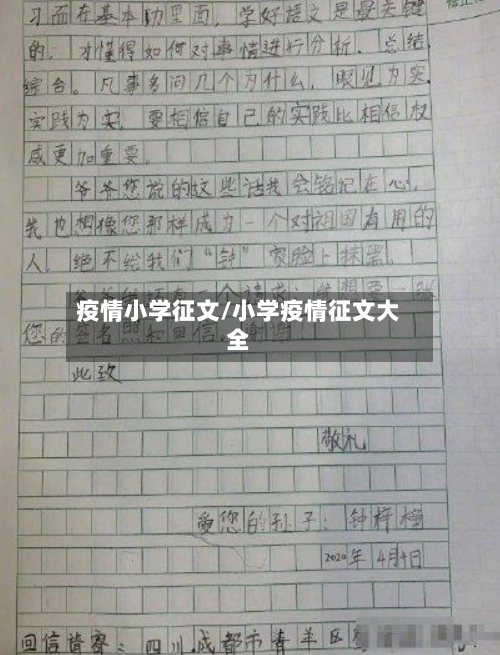 习而在基本功里面，学好语文是最关键
的，才懂得如何对事情进行分析、总结、
综合。凡事多问几个为什么，眼见为实，
实践为实，要相信自己的实践比相信权
威更加重要。
爷爷您说的这些话我会铭记在心，
我也想像您那样成为一个对祖国有用的
人，绝不给我们“钟”家脸上抹黑。
疫情小学征文/小学疫情征文大
全
您的签名照和回信。谢谢
此致
敬礼
爱您的孙子：钟梓楠
2020年4月4日
回信请寄：四川成都市青羊区